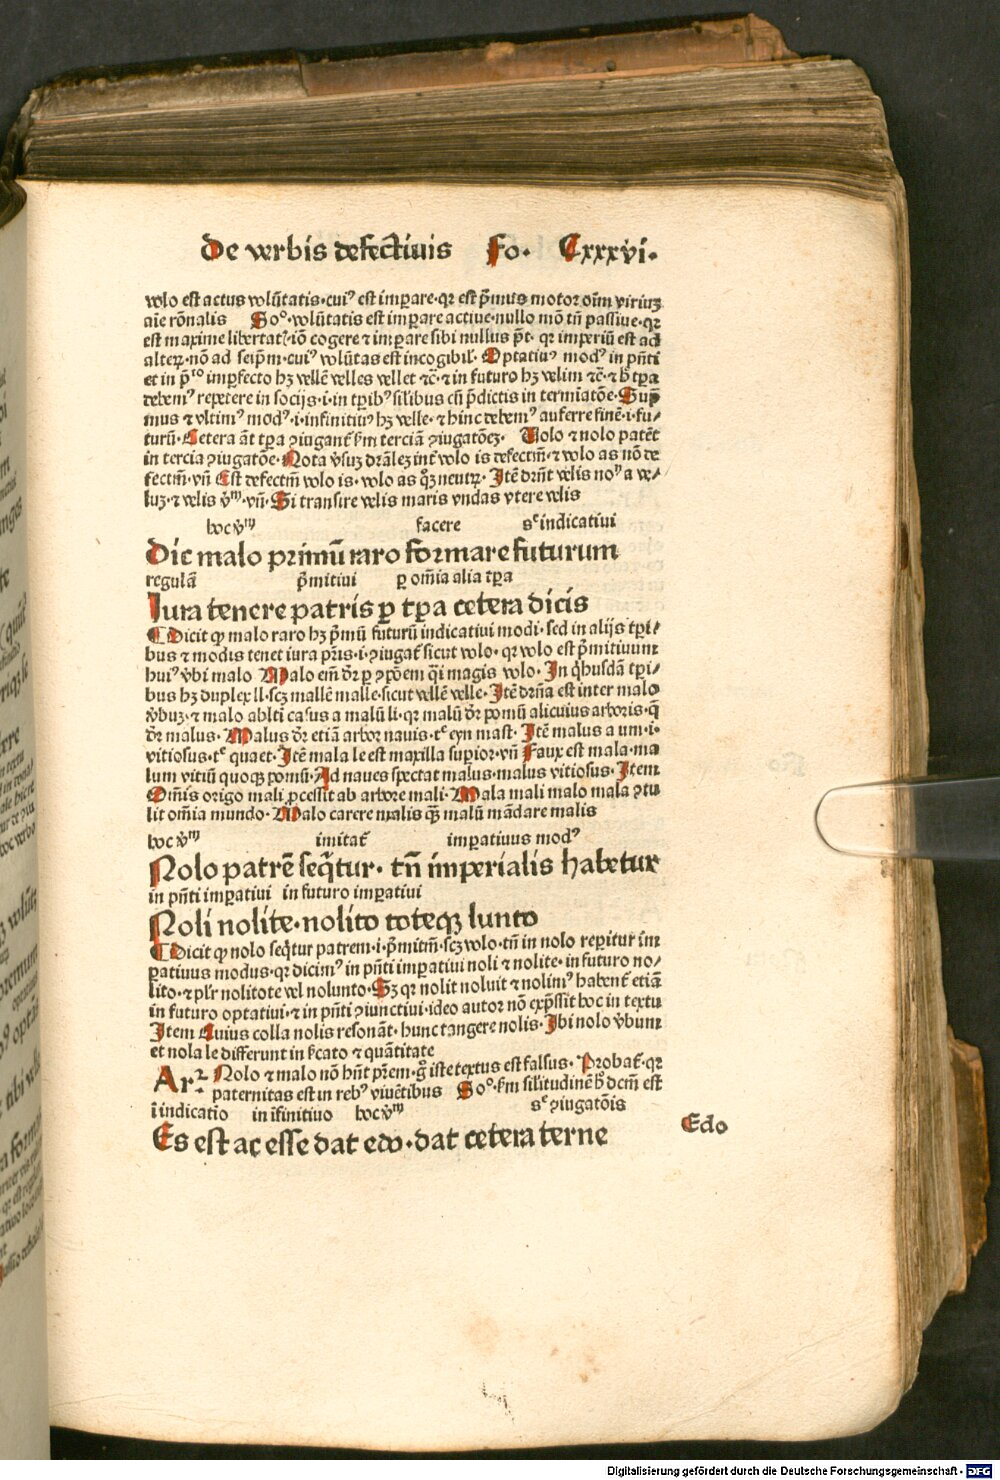 De verbis defectiuis Fo. Cxxxvi.
volo est actus volũtatis·cuiꝰ est imꝑare·qꝛ est p̃mus motor oĩm viriuꝫ
aĩe rõnalis Soᵒ·volũtatis est imꝑare actiue·nullo mõ tñ passiue·qꝛ
est maxime libertatꝭ·iõ cogere ⁊ imꝑare sibi nullus põt· qꝛ imperiũ est ad
alteꝝ·nõ ad seip̃m·cuiꝰ volũtas est incogibil'· Optatiuꝰ modꝰ in pñti
et in p̃ᵗᵒ imꝑfecto hꝫ vellẽ velles vellet ⁊c̃·⁊ in futuro hꝫ velim ⁊c̃·⁊ h̾ tꝑa
debemꝰ repetere in socijs·i·in tꝑibꝰ silibus cũ p̃dictis in termiatõe·Sup̃
mus ⁊ vltimꝰ modꝰ·i·infinitiuꝰ hꝫ velle·⁊ hinc debemꝰ auferre finẽ·i·fu⸗
turũ·Cetera ãt tꝑa ꝯiugant̃ fm̃ terciã ꝯiugatõeꝫ· Uolo ⁊ nolo patẽt
in tercia ꝯiugatõe·Nota ṽsuꝫ drãleꝫ int̃ volo is defectm̃·⁊ volo as nõ de
fectm̃·vñ Est defectm̃ volo is·volo as qꝫ neutꝝ· Itẽ drñt velis noᵃ a ve⸗
luꝫ·⁊ velis ṽᵐ·vñ·Si transire velis maris vndas vtere velis
hoc ṽᵐ facere sꝫ indicatiui
Dic malo primũ raro formare futurum
regulã p̃mitiui ꝑ om̃ia alia tꝑa
Iura tenere patris ꝑ tꝑa cetera dicis
¶Dicit ꝙ malo raro hꝫ p̃mũ futurũ indicatiui modi·sed in alijs tꝑi⸗
bus ⁊ modis tenet iura pr̃is·i·ꝯiugat̃ sicut volo·qꝛ volo est p̃mitiuum
huiꝰ ṽbi malo Malo em̃ dr̃ ꝑ ꝯpõem q̃i magis volo·In q̃busdã tꝑi⸗
bus hꝫ duplex ll·scꝫ mallẽ malle·sicut vellẽ velle·Itẽ drñã est inter malo
ṽbuꝫ·⁊ malo ablti casus a malũ li·qꝛ malũ dr̃ pomũ alicuius arboris·q̃
dr̃ malus·Malus dr̃ etiã arbor nauis·t̾ eyn mast·Itẽ malus a um·i·
vitiosus·t̾ quaet·Itẽ mala le est maxilla suꝑior·vñ Faux est mala·ma
lum vitiũ quoqꝫ pomũ·Ad naues spectat malus·malus vitiosus·Item
Om̃is origo mali ꝓcessit ab arbore mali·Mala mali malo mala ꝯtu
lit om̃ia mundo·Malo carere malis q̃ꝫ malũ mãdare malis
hoc ṽᵐ imitat̃ imꝑatiuus modꝰ
Nolo patrẽ seq̃tur· tñ imperialis habetur
in pñti imꝑatiui in futuro imꝑatiui
Noli nolite·nolito toteqꝫ lunto
¶Dicit ꝙ nolo seq̃tur patrem·i·p̃mitm̃·scꝫ volo·tñ in nolo reꝑitur im
ꝑatiuus modus·qꝛ dicimꝰ in pñti imꝑatiui noli ⁊ nolite·in futuro no⸗
lito·⁊ pl'r nolitote vel nolunto·Sꝫ qꝛ nolit noluit ⁊ nolimꝰ habent̃ etiã
in futuro optatiui·⁊ in pñti ꝯiunctiui·ideo autor nõ exp̃ssit hoc in textu
Item Cuius colla nolis resonãt·hunc tangere nolis·Ibi nolo ṽbum
et nola le differunt in sͨcato ⁊ quãtitate
Arꝛ Nolo ⁊ malo nõ hñt pr̃em·gͦ iste textus est falsus· Probat̃·qꝛ
paternitas est in rebꝰ viuẽtibus Soᵒ·fm̃ silitudinẽ h̾ dcm̃ est
ĩ indicatio in ĩfinitiuo hoc ṽᵐ sꝫ ꝯiugatõis
Es est ac esse dat edo·dat cetera terne Edo
Digitalisierung gefördert durch die Deutsche Forschungsgemeinschaft - DFG